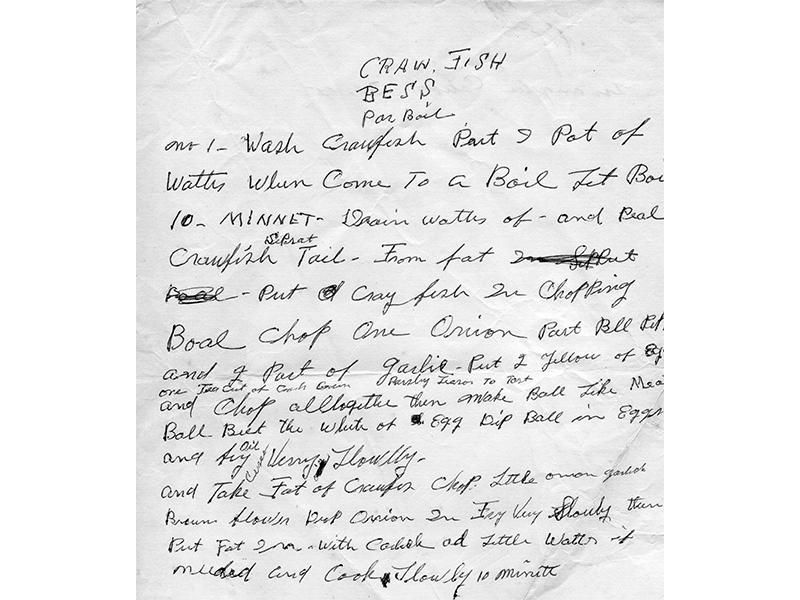 CRAW. FISH
BESS
Par Boil
no 1- Wash Crawfish Part 2 Pot of
Watter When Come To a Boil Let Boi
10- MINNET- Drain watter of - and Peal
Seprat
Crawfish Tail - From fat In
- Put Cray fish In Chopping
Boal Chop One Onion Part Bell Pep
and 2 Part of garlic - Put 2 Yellow of Eg
one Tea Cut of Parsley Season To Tast
and Chop alltogethe then make Ball Like Mea
Ball Beet the White of Egg Dip Ball in Eggs
Oil
and fry Verry Slowlly -
and Take Fat of Crawfis Chop Little onion garlick
Brown Onion In Fry Very Slowly then
Put Fat Inn - With ad Little Watter if
needed and Cook Slowly 10 minute